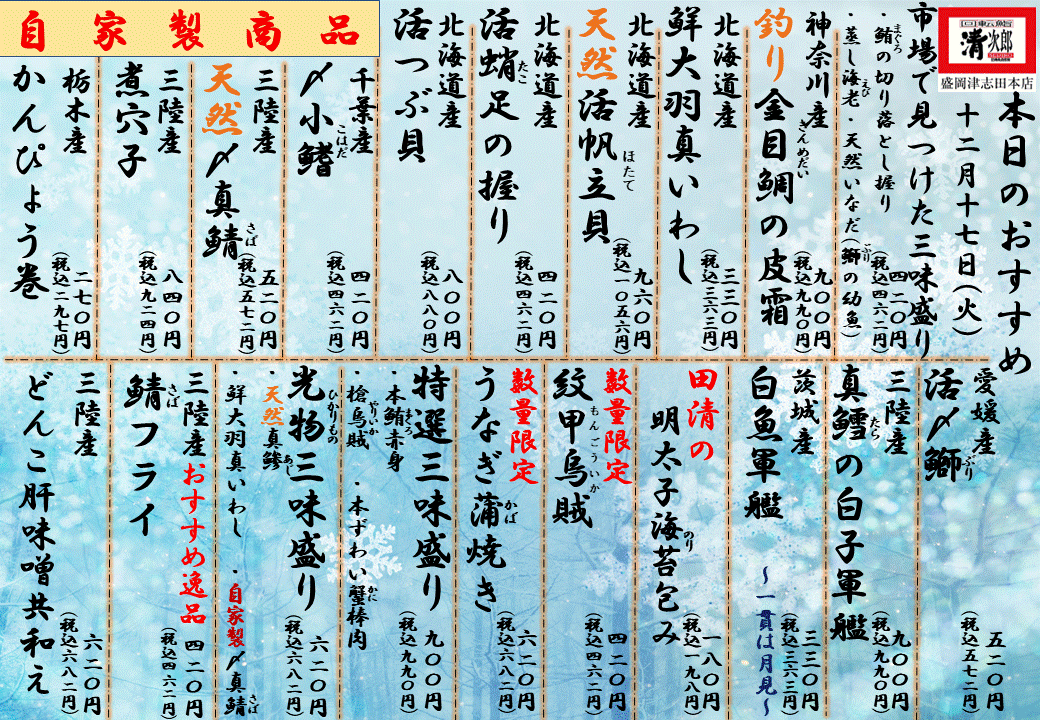 回転鮨
清次郎
盛岡津志田本店
本日のおすすめ
十二月十七日(火)
市場で見つけた三味盛り
・鮪の切り落とし握り
まぐろ
・蒸し海老・天然いなだ(鰤の幼魚)
えび
こぶり
四二〇円
(税込四六二円)
神奈川産
釣り金目鯛の皮霜
きんめだい
九〇〇円
(税込九九〇円)
北海道産
鮮大羽真いわし
三三〇円
(税込三六三円)
北海道産
天然活帆立貝
ほたて
九六〇円
(税込一〇五六円)
北海道産
活蛸足の握り
たこ
四二〇円
(税込四六二円)
北海道産
活つぶ貝
八〇〇円
(税込八八〇円)
自家製商品
千葉産
〆小鰭
こはだ
四二〇円
(税込四六二円)
三陸産
天然〆真鯖
さば
五二〇円
(税込五七二円)
三陸産
煮穴子
八四〇円
(税込九二四円)
栃木産
かんぴょう巻
二七〇円
(税込二九七円)
愛媛産
活〆鰤
ぶり
五二〇円
(税込五七二円)
三陸産
真鱈の白子軍艦
たら
九〇〇円
(税込九九〇円)
茨城産
白魚軍艦
~一貫は月見~
三三〇円
(税込三六三円)
田清の
明太子海苔包み
のり
一八〇円
(税込一九八円)
数量限定
紋甲烏賊
もんごういか
四二〇円
(税込四六二円)
数量限定
うなぎ蒲焼き
かば
六二〇円
(税込六八二円)
特選三味盛り
・本鮪赤身
まぐろ
・槍烏賊
やりいか
・本ずわい蟹棒肉
かに
九〇〇円
(税込九九〇円)
光物三味盛り
ひかりもの
・天然真鯵
あじ
・鮮大羽真いわし
・自家製〆真鯖
さば
六二〇円
(税込六八二円)
三陸産
おすすめ逸品
鯖フライ
さば
四二〇円
(税込四六二円)
三陸産
どんこ肝味噌共和え
六二〇円
(税込六八二円)